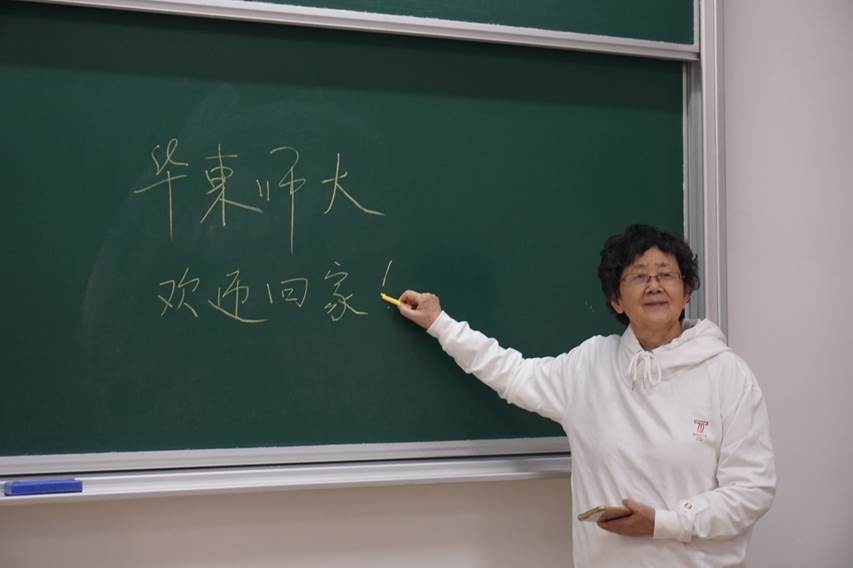 华東师大
欢迎回家！